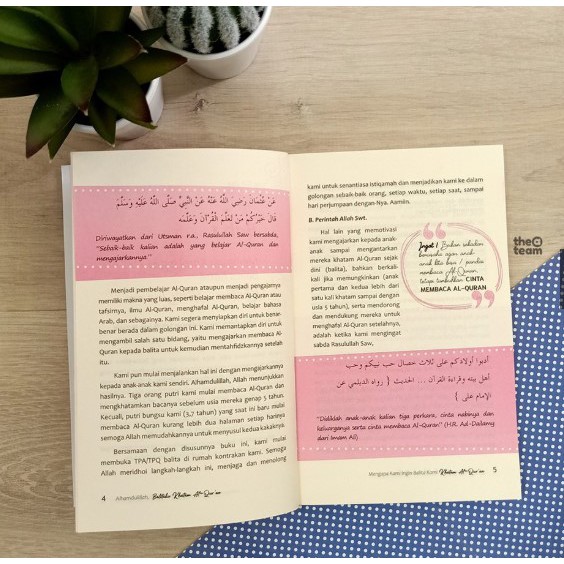 عَنْ عُثْمَانَ رَضِيَ اللهُ عَنْهُ عَنِ النَّبِيِّ صَلَّى اللهُ عَلَيْهِ وَسَلَّمَ
قَالَ خَيْرُكُمْ مَنْ تَعَلَّمَ الْقُرْآنَ وَعَلَّمَهُ
Diriwayatkan dari Utsman r.a., Rasulullah Saw bersabda,
"Sebaik-baik kalian adalah yang belajar Al-Quran dan
mengajarkannya."
Menjadi pembelajar Al-Quran ataupun menjadi pengajarnya
memiliki makna yang luas, seperti belajar membaca Al-Quran atau
tafsirnya, ilmu Al-Quran, menghafal Al-Quran, belajar bahasa
Arab, dan sebagainya. Kami segera menyiapkan diri untuk benar-
benar berada dalam golongan ini. Kami memantapkan diri untuk
mengambil salah satu bidang, yaitu mengajarkan membaca Al-
Quran kepada balita untuk kemudian mentahfidzkannya setelah
itu.
Kami pun mulai menjalankan hal ini dengan mengajarkannya
kepada anak-anak kami sendiri. Alhamdulillah, Allah menunjukkan
hasilnya. Tiga orang putri kami mulai membaca Al-Quran dan
mengkhatamkan bacanya sebelum usia mereka genap 5 tahun.
Kecuali, putri bungsu kami (3,7 tahun) yang saat ini baru mulai
membaca Al-Quran kurang lebih dua halaman setiap harinya
semoga Allah memudahkannya untuk menyusul kedua kakaknya.
Bersamaan dengan disusunnya buku ini, kami mulai
membuka TPA/TPQ balita di rumah kontrakan kami. Semoga
Allah meridhoi langkah-langkah ini, menjaga dan menolong
4 Alhamdulillah, Balitaku Khatam Al-Qur'an
kami untuk senantiasa istiqamah dan menjadikan kami ke dalam
golongan sebaik-baik orang, setiap waktu, setiap saat, sampai
hari perjumpaan dengan-Nya. Aamiin.
B. Perintah Allah Swt.
Hal lain yang memotivasi
kami mengajarkan kepada anak-
anak sampai mengantarkan
mereka khatam Al-Quran sejak
dini (balita), bahkan berkali-
kali jika memungkinkan (anak
pertama dan kedua lebih dari
satu kali khatam sampai dengan
usia 5 tahun), serta mendorong
dan mendukung mereka untuk
menghafal Al-Quran setelahnya,
adalah ketika kami mengingat
sabda Rasulullah Saw,
Ingat! Bukan sekadar
berusaha agar anak-
anak kita bisa / pandai
membaca Al-Quran,
tetapi tumbuhkan CINTA
MEMBACA AL-QURAN
أدبوا أولادكم على ثلاث خصال حب نبيكم وحب
أهل بيته وقراءة القرآن ... الحديث { رواه الديلمي عن
الإمام علي }
"Didiklah anak-anak kalian tiga perkara, cinta nabinya dan
keluarganya serta cinta membaca Al-Quran" (HR. Ad-Dailamy
dari Imam Ali)
Mengapa Kami Ingin Balita Kami Khatam Al-Qur'an 5
the
team